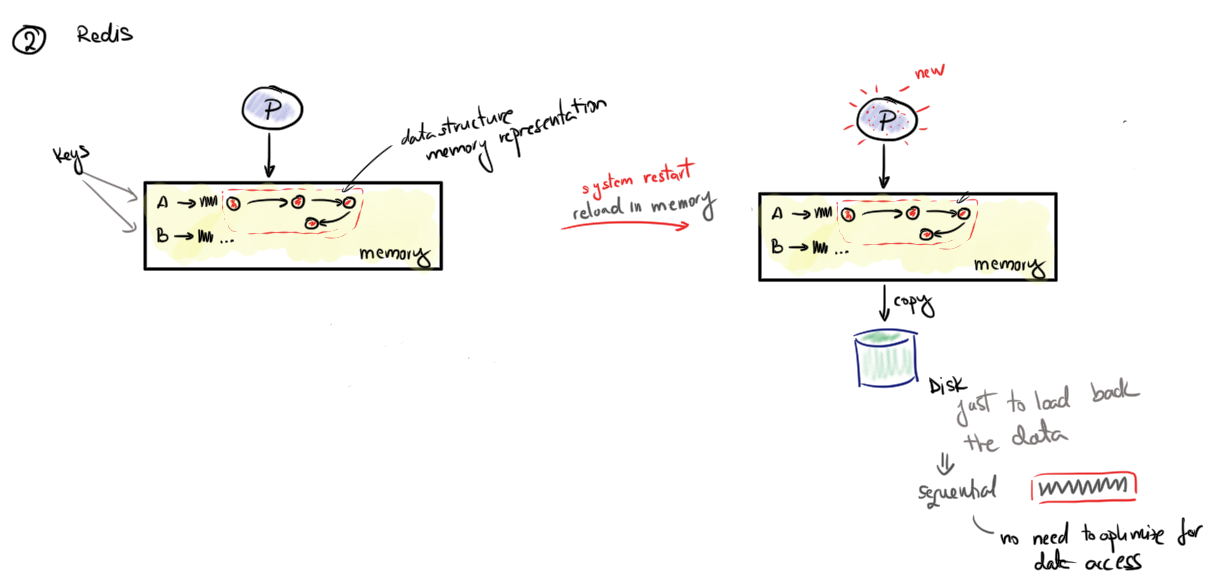 2 Redis
P
data structure
memory representation
keys
A
B ...
memory
system restart
reload in memory
new
P
A
B ...
memory
copy
Disk
just to load back
the data
sequential
no need to optimize for
data access